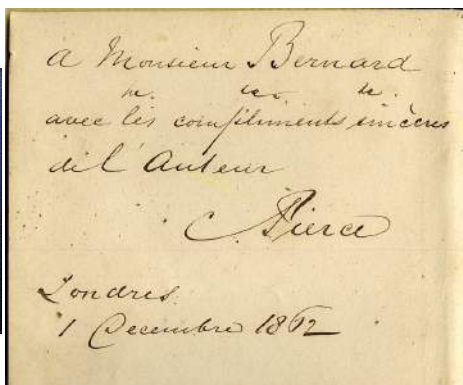 a Monsieur Bernard
avec les compliments sincères
de l'Auteur
Pierce
Londres
1 Decembre 1862